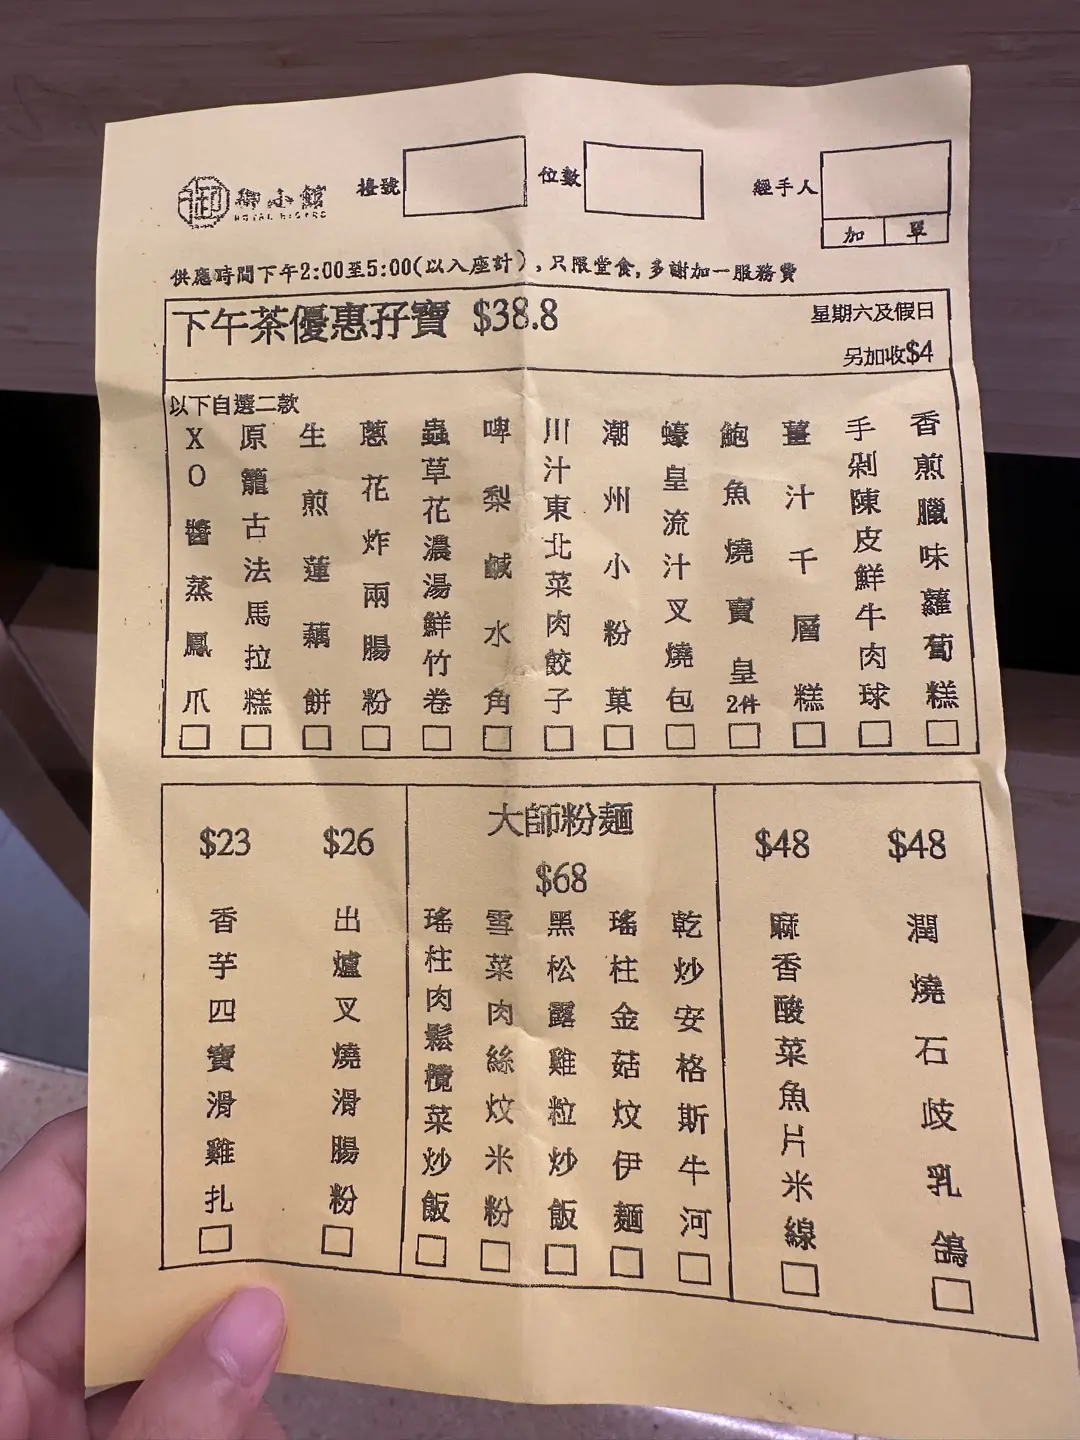 御小館
ROYAL BISTRO
檯號
位數
經手人
加 單
供應時間下午2:00至5:00(以入座計),只限堂食,多謝加一服務費
下午茶優惠孖寶 $38.8
星期六及假日
另加收$4
以下自選二款
XO醬蒸鳳爪
原籠古法馬拉糕
生煎蓮藕餅
蔥花炸兩腸粉
蟲草花濃湯鮮竹卷
啤梨鹹水角
川汁東北菜肉餃子
潮州小粉菓
蠔皇流汁叉燒包
鮑魚燒賣皇2件
薑汁千層糕
手剁陳皮鮮牛肉球
香煎臘味蘿蔔糕
$23
香芋四寶滑雞扎
$26
出爐叉燒滑腸粉
大師粉麵
$68
瑤柱肉鬆欖菜炒飯
雪菜肉絲炆米粉
黑松露雞粒炒飯
瑤柱金菇炆伊麵
乾炒安格斯牛河
$48
麻香酸菜魚片米線
$48
潤燒石歧乳鴿